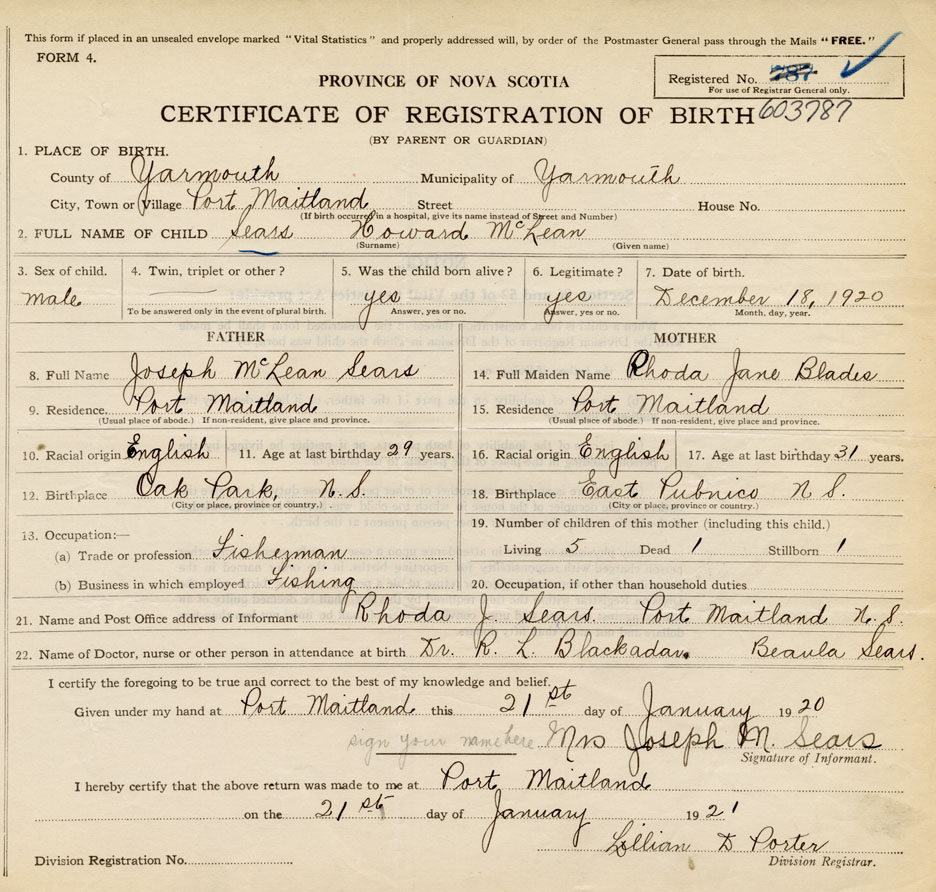 This form if placed in an unsealed envelope marked "Vital Statistics" and properly addressed will, by order of the Postmaster General pass through the Mails "FREE."
FORM 4.
PROVINCE OF NOVA SCOTIA
Registered No. 787
For use of Registrar General only.
CERTIFICATE OF REGISTRATION OF BIRTH 603787
(BY PARENT OR GUARDIAN)
1. PLACE OF BIRTH.
County of Yarmouth Municipality of Yarmouth
City, Town or Village Port Maitland Street House No.
(If birth occurred in a hospital, give its name instead of Street and Number)
2. FULL NAME OF CHILD Sears Howard McLean
(Surname) (Given name)
3. Sex of child. 4. Twin, triplet or other? 5. Was the child born alive? 6. Legitimate? 7. Date of birth.
male yes yes December 18, 1920
To be answered only in the event of plural birth. Answer, yes or no. Answer, yes or no. Month, day, year.
FATHER MOTHER
8. Full Name Joseph McLean Sears 14. Full Maiden Name Rhoda Jane Blades
9. Residence. Port Maitland 15. Residence Port Maitland
(Usual place of abode.) If non-resident, give place and province. (Usual place of abode.) If non-resident, give place and province.
10. Racial origin English 11. Age at last birthday 29 years. 16. Racial origin English 17. Age at last birthday 31 years.
12. Birthplace Oak Park, N.S. 18. Birthplace East Pubnico N S.
(City or place, province or country.) (City or place, province or country.)
19. Number of children of this mother (including this child.)
13. Occupation:—
(a) Trade or profession Fisherman Living 5 Dead 1 Stillborn 1
(b) Business in which employed Fishing 20. Occupation, if other than household duties
21. Name and Post Office address of Informant Rhoda J. Sears. Port Maitland N.S.
22. Name of Doctor, nurse or other person in attendance at birth Dr. R. L. Blackadar. Beaula Sears.
I certify the foregoing to be true and correct to the best of my knowledge and belief.
Given under my hand at Port Maitland this 21st day of January 1920
sign your name here Mrs Joseph M. Sears
Signature of Informant.
I hereby certify that the above return was made to me at Port Maitland
on the 21st day of January 1921
Lillian D Porter
Division Registration No. Division Registrar.